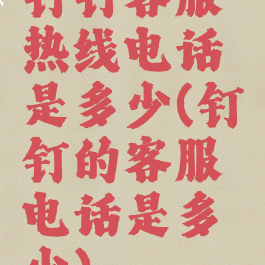 钉钉客服
热线电话
是多少(钉
钉的客服
电话是多
少)